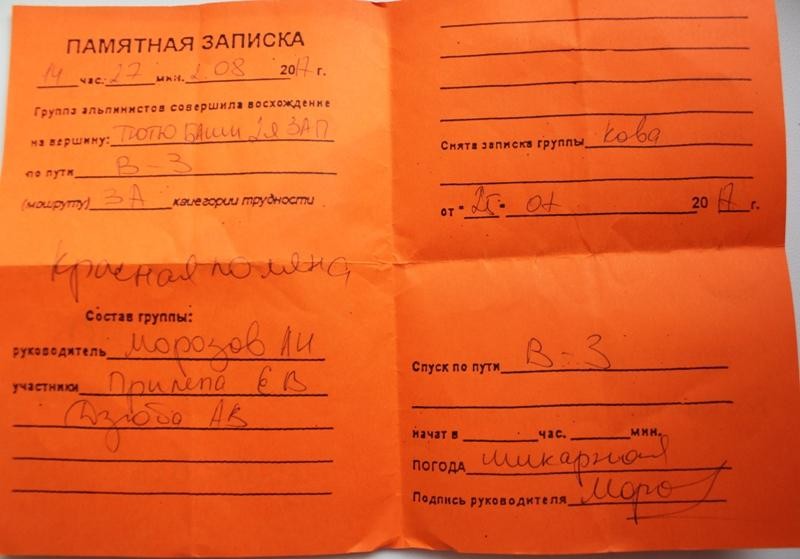 ПАМЯТНАЯ ЗАПИСКА
14 час. 27 мин. 2.08 2017 г.
Группа альпинистов совершила восхождение
на вершину: ТЮТЮ БАШИ 2я ЗАП
по пути В-З
(маршруту) 3А категории трудности
Красная поляна
Состав группы:
руководитель Морозов АИ
участники Прилепа ЕВ
Дзюба АВ
Снята записка группы Кова
от " 25 " 07 2017 г.
Спуск по пути В-З
начат в час. мин.
ПОГОДА шикарная
Подпись руководителя Моро